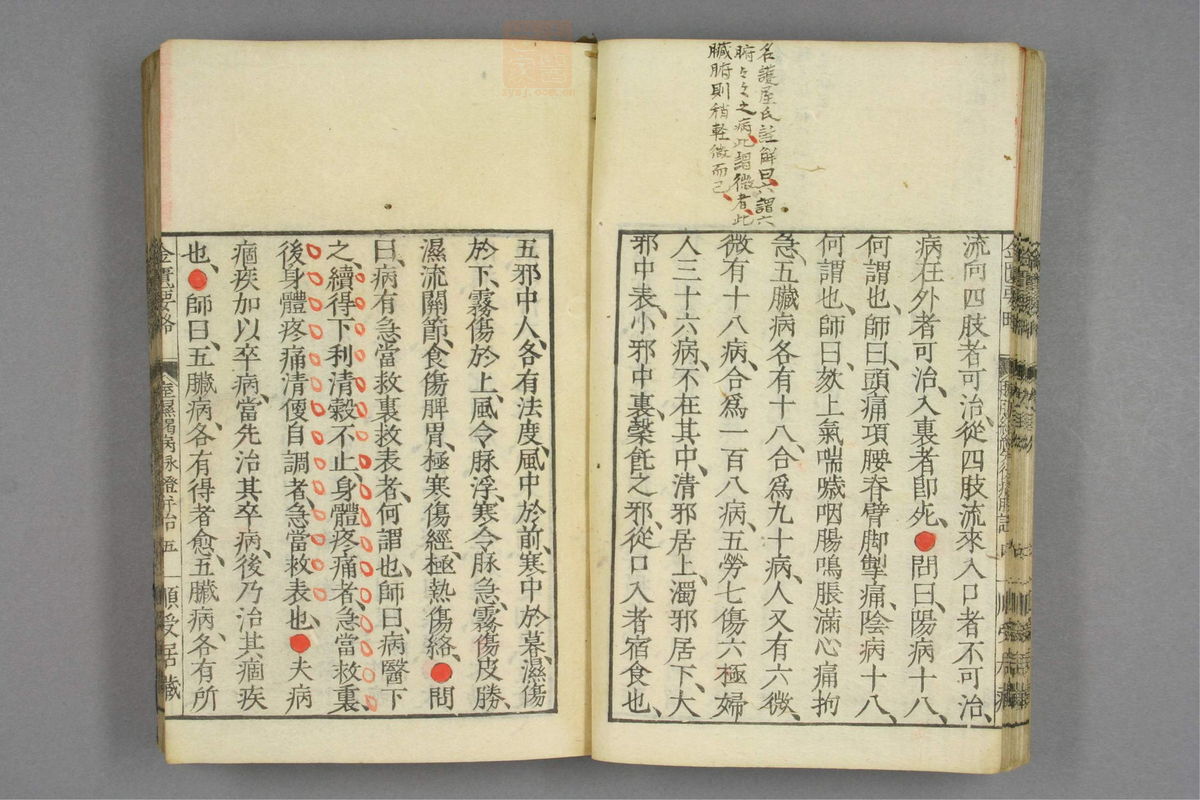 名護屋氏註解曰六謂六
腑々々之病此謂微者此
臓腑則稍軽微而已
流向四肢者可治從四肢流來入口者不可治
病在外者可治入裏者卽死問曰陽病十八
何謂也師曰頭痛項腰脊臂脚掣痛陰病十八
何謂也師曰欬上氣喘噦咽腸鳴脹滿心痛拘
急五臟病各有十八合爲九十病人又有六微
微有十八病合爲一百八病五勞七傷六極婦
人三十六病不在其中清邪居上濁邪居下大
邪中表小邪中裏䅽飥之邪從口入者宿食也
五邪中人各有法度風中於前寒中於暮濕傷
於下霧傷於上風令脉浮寒令脉急霧傷皮腠
濕流關節食傷脾胃極寒傷經極熱傷絡問
曰病有急當救裏救表者何謂也師曰病醫下
之續得下利清穀不止身體疼痛者急當救裏
後身體疼痛清便自調者急當救表也夫病
痼疾加以卒病當先治其卒病後乃治其痼疾
也師曰五臟病各有得者愈五臟病各有所
金匱要略
痙濕暍病脉證并治 五
順受居藏